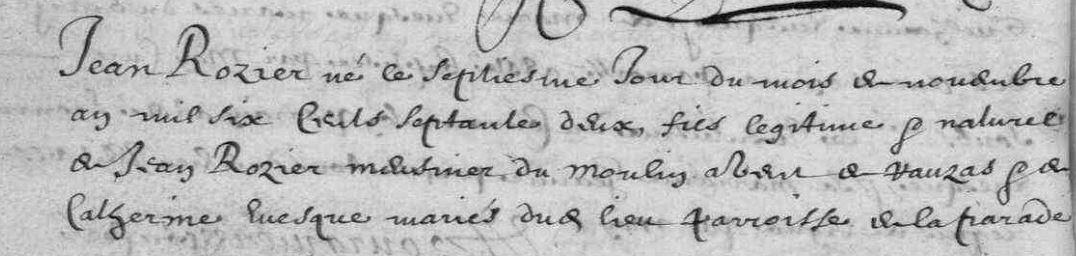 Jean Rozier né le septiesme Jour du mois de novembre
an mil six Cents septante deux, fils legitime & naturel
de Jean Rozier meusnier du moulin a vent de vauzas & de
Catherine Evesque mariés dud lieu parroisse de la parade